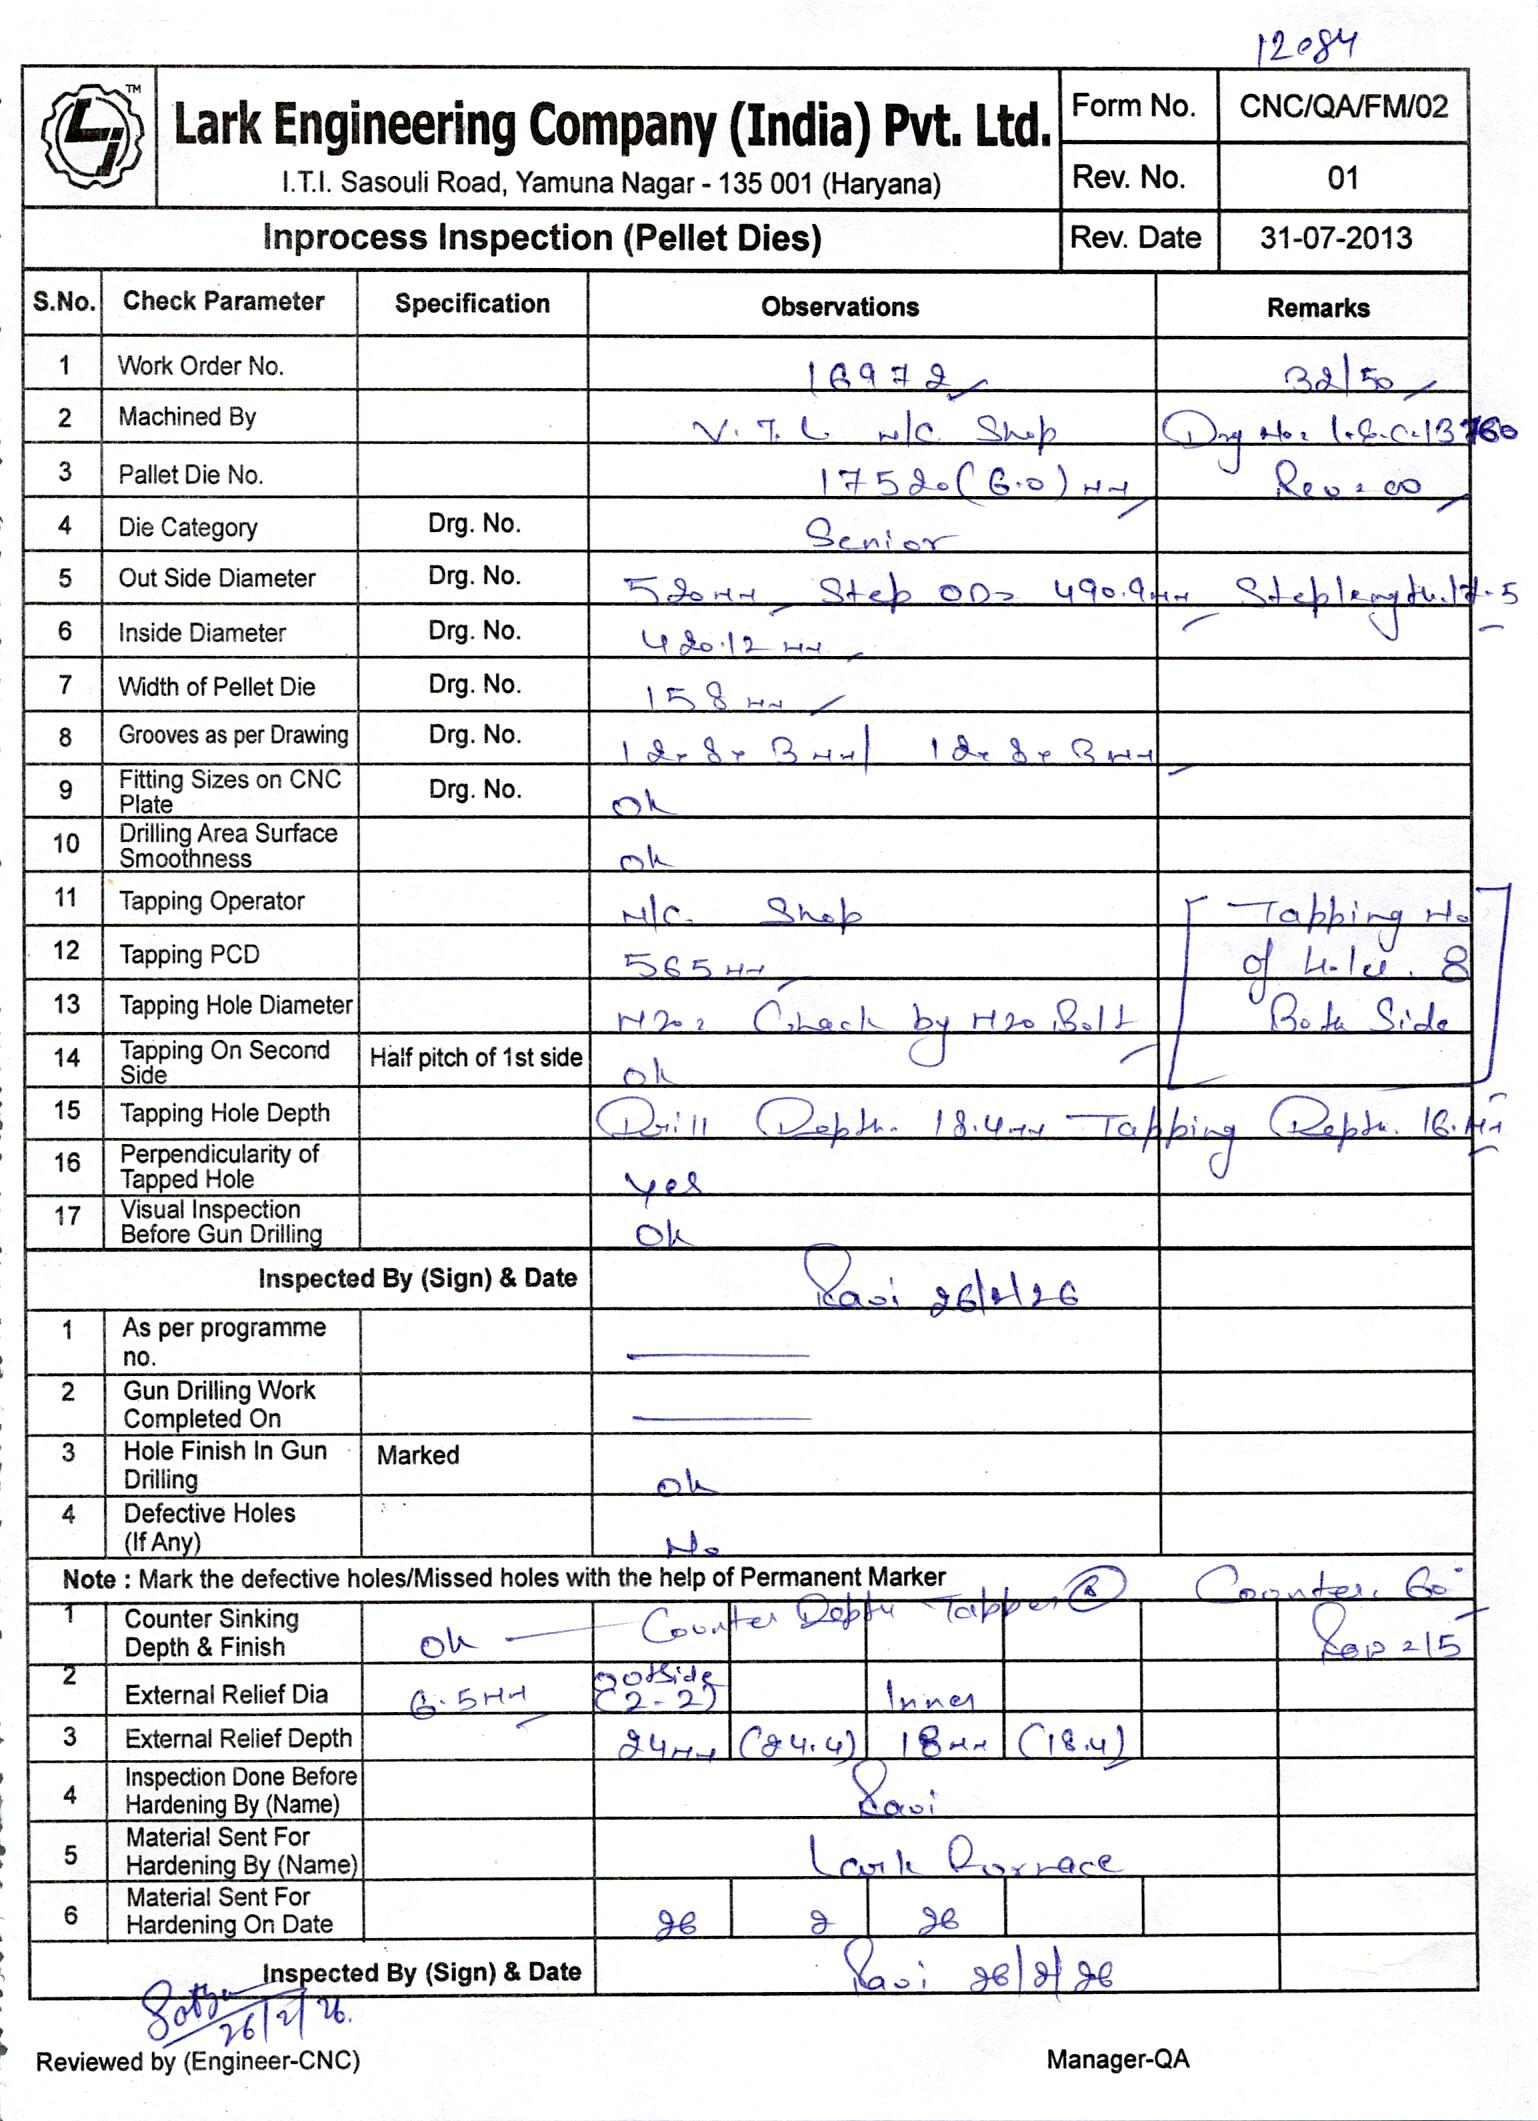 12084
LJ TM
Lark Engineering Company (India) Pvt. Ltd.
I.T.I. Sasouli Road, Yamuna Nagar - 135 001 (Haryana)
Form No. CNC/QA/FM/02
Rev. No. 01
Inprocess Inspection (Pellet Dies) Rev. Date 31-07-2013
S.No. Check Parameter Specification Observations Remarks
1 Work Order No. 16972 32/50
2 Machined By V.T.L M/C Shop Drg No: L.E.C-13760
3 Pallet Die No. 17520 (6.0) MM Rev: 00
4 Die Category Drg. No. Senior
5 Out Side Diameter Drg. No. 520MM Step OD= 490.9MM Step length.17.5
6 Inside Diameter Drg. No. 420.12 MM
7 Width of Pellet Die Drg. No. 158 MM
8 Grooves as per Drawing Drg. No. 12x8x3MM/ 12x8x3MM
9 Fitting Sizes on CNC Plate Drg. No. Ok
10 Drilling Area Surface Smoothness Ok
11 Tapping Operator M/C. Shop Tapping No
12 Tapping PCD 565MM of Hole. 8
13 Tapping Hole Diameter M20: Check by M20 Bolt Both Side
14 Tapping On Second Side Half pitch of 1st side Ok
15 Tapping Hole Depth Drill Depth. 18.4MM Tapping Depth. 16.MM
16 Perpendicularity of Tapped Hole Yes
17 Visual Inspection Before Gun Drilling Ok
Inspected By (Sign) & Date Ravi 26/2/26
1 As per programme no.
2 Gun Drilling Work Completed On
3 Hole Finish In Gun Drilling Marked Ok
4 Defective Holes (If Any) No
Note : Mark the defective holes/Missed holes with the help of Permanent Marker
1 Counter Sinking Depth & Finish Ok Counter Depth Tapper Counter. 60°
2 External Relief Dia 6.5MM Outside (2-2) Inner
3 External Relief Depth 24MM (24.4) 18MM (18.4)
4 Inspection Done Before Hardening By (Name) Ravi
5 Material Sent For Hardening By (Name) Lark Furnace
6 Material Sent For Hardening On Date 26 2 26
Inspected By (Sign) & Date Ravi 26/2/26
26/2/26.
Reviewed by (Engineer-CNC) Manager-QA